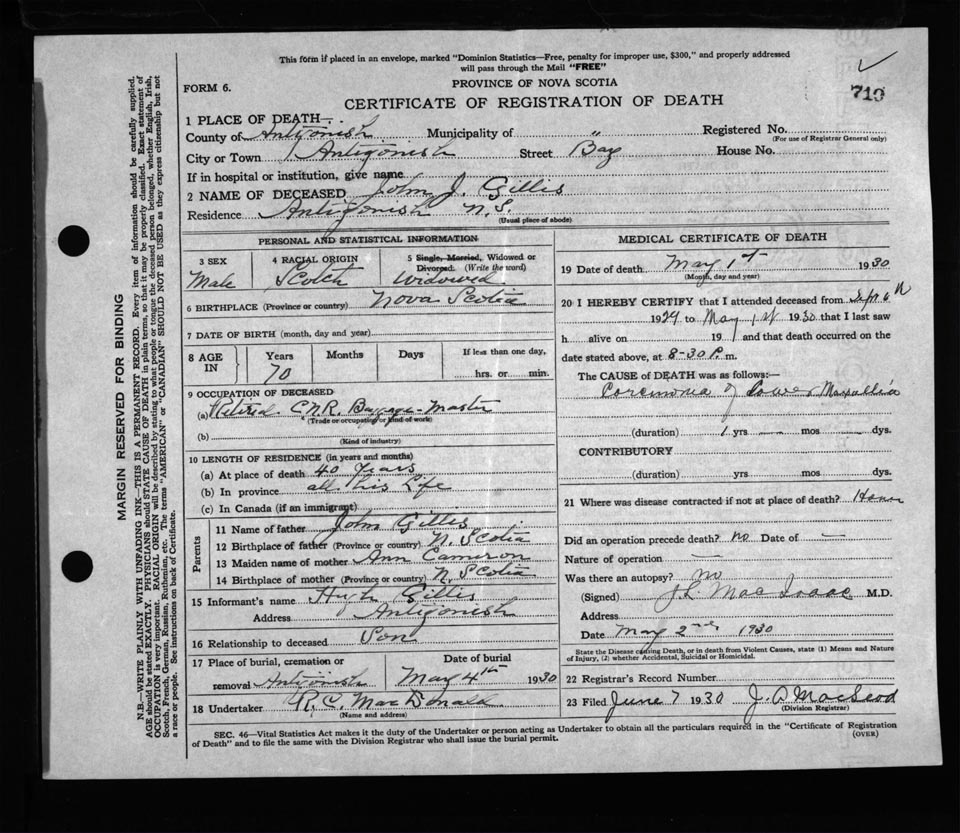 This form if placed in an envelope, marked "Dominion Statistics—Free, penalty for improper use, $300," and properly addressed
will pass through the Mail "FREE"
FORM 6.
PROVINCE OF NOVA SCOTIA
719
CERTIFICATE OF REGISTRATION OF DEATH
1 PLACE OF DEATH
County of Antigonish Municipality of " Registered No.
(For use of Registrar General only)
City or Town Antigonish Street Bay House No.
If in hospital or institution, give name
2 NAME OF DECEASED John J. Gillis
Residence Antigonish N.S.
(Usual place of abode)
PERSONAL AND STATISTICAL INFORMATION
3 SEX Male
4 RACIAL ORIGIN Scotch
5 Single, Married, Widowed or
Divorced. (Write the word)
Widowed.
6 BIRTHPLACE (Province or country) Nova Scotia
7 DATE OF BIRTH (month, day and year)
8 AGE IN
Years Months Days If less than one day,
70 hrs. or min.
9 OCCUPATION OF DECEASED
(a) Retired C.N.R. Baggage-Master
(Trade or occupation or kind of work)
(b)
(Kind of industry)
10 LENGTH OF RESIDENCE (in years and months)
(a) At place of death 40 Years
(b) In province all his Life
(c) In Canada (if an immigrant)
Parents
11 Name of father John Gillis
12 Birthplace of father (Province or country) N. Scotia
13 Maiden name of mother Ann Cameron
14 Birthplace of mother (Province or country) N. Scotia
15 Informant's name Hugh Gillis
Address Antigonish
16 Relationship to deceased Son
17 Place of burial, cremation or Date of burial
removal Antigonish May 4th 1930
18 Undertaker R.C. MacDonald
(Name and address)
MEDICAL CERTIFICATE OF DEATH
19 Date of death May 1st 1930
(Month, day and year)
20 I HEREBY CERTIFY that I attended deceased from Sept
1929 to May 1st 1930 that I last saw
h alive on 19 and that death occurred on the
date stated above, at 8-30 P. m.
The CAUSE of DEATH was as follows:—
of Lower
(duration) 1 yrs — mos — dys.
CONTRIBUTORY
(duration) yrs mos dys.
21 Where was disease contracted if not at place of death?
Did an operation precede death? no Date of —
Nature of operation —
Was there an autopsy? no
(Signed) J.L. MacIsaac M.D.
Address
Date May 2nd 1930
State the Disease causing Death, or in death from Violent Causes, state (1) Means and Nature
of Injury, (2) whether Accidental, Suicidal or Homicidal.
22 Registrar's Record Number
23 Filed June 7 1930 J. P. MacLeod
(Division Registrar)
SEC. 46—Vital Statistics Act makes it the duty of the Undertaker or person acting as Undertaker to obtain all the particulars required in the "Certificate of Registration
of Death" and to file the same with the Division Registrar who shall issue the burial permit.
(OVER)
MARGIN RESERVED FOR BINDING
N.B.—WRITE PLAINLY WITH UNFADING INK—THIS IS A PERMANENT RECORD. Every item of information should be carefully supplied.
AGE should be stated EXACTLY. PHYSICIANS should STATE CAUSE OF DEATH in plain terms, so that it may be properly classified. Exact statement of
OCCUPATION is very important. RACIAL ORIGIN will be described by stating to what people or tongue the deceased person belonged, whether English, Irish,
Scotch, French, German, Russian, Ruthenian, etc. The terms "AMERICAN" or "CANADIAN" SHOULD NOT BE USED as they express citizenship but not
a race or people. See instructions on back of Certificate.